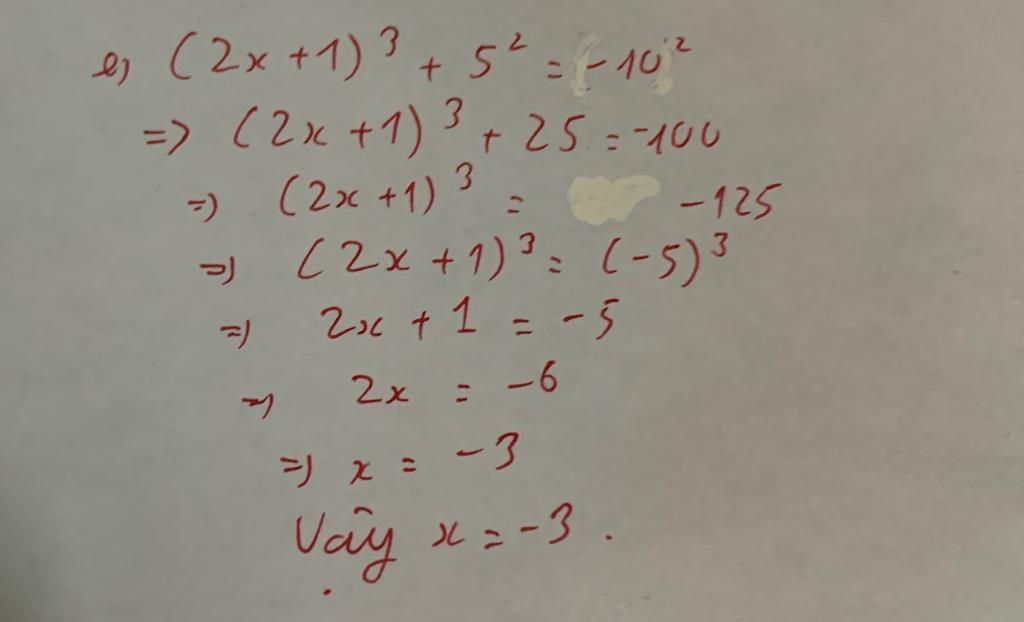 e, (2x+1)³ + 5² = -10²
=> (2x+1)³ + 25 = -100
=> (2x+1)³ = -125
=> (2x+1)³ = (-5)³
=> 2x + 1 = -5
=> 2x = -6
=> x = -3
Vậy x = -3 .